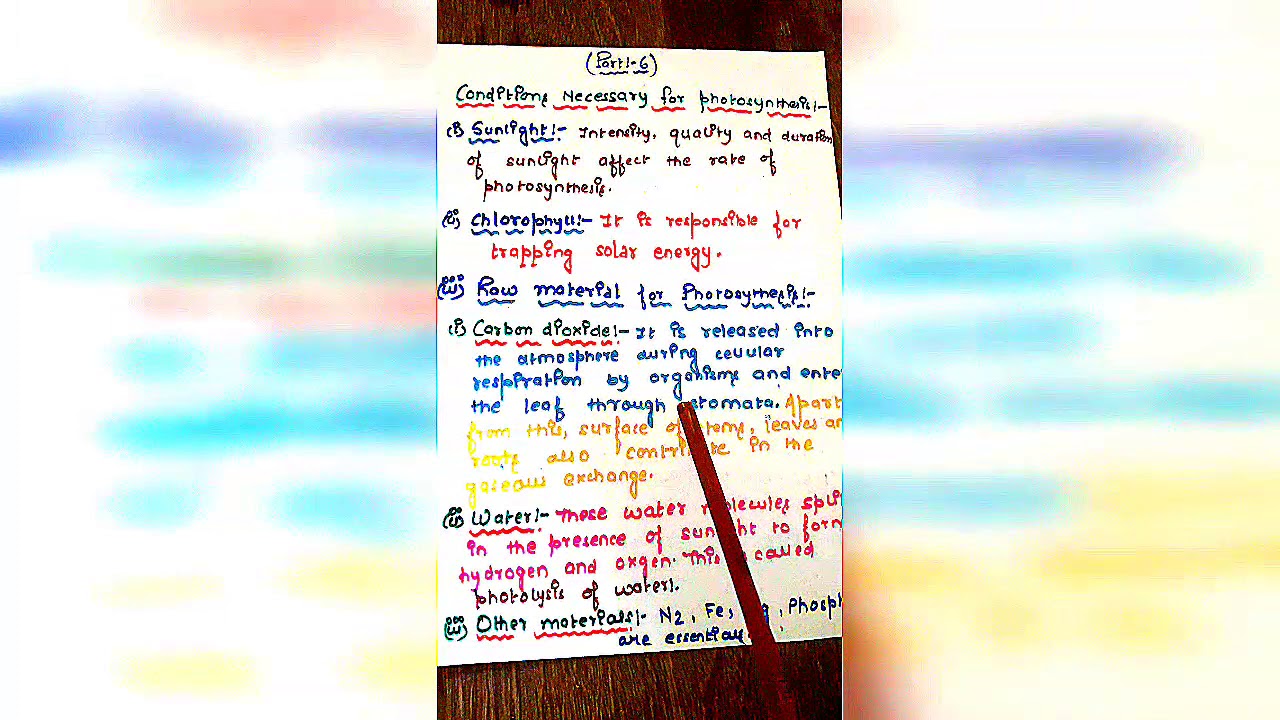 (Part:- 6)
Conditions Necessary for photosynthesis:-
(i) Sunlight:- Intensity, quality and duration
of sunlight affect the rate of
photosynthesis.
(ii) Chlorophyll:- It is responsible for
trapping solar energy.
(iii) Raw material for Photosynthesis:-
(i) Carbon dioxide:- It is released into
the atmosphere during cellular
respiration by organisms and ente
the leaf through stomata. Apart
from this, surface of stems, leaves an
roots also contribute in the
gaseous exchange.
(ii) Water:- These water molecules spli
in the presence of sunlight to form
hydrogen and oxgen. This called
photolysis of water.
(iii) Other materials:- N2, Fe, Phosph
are essential